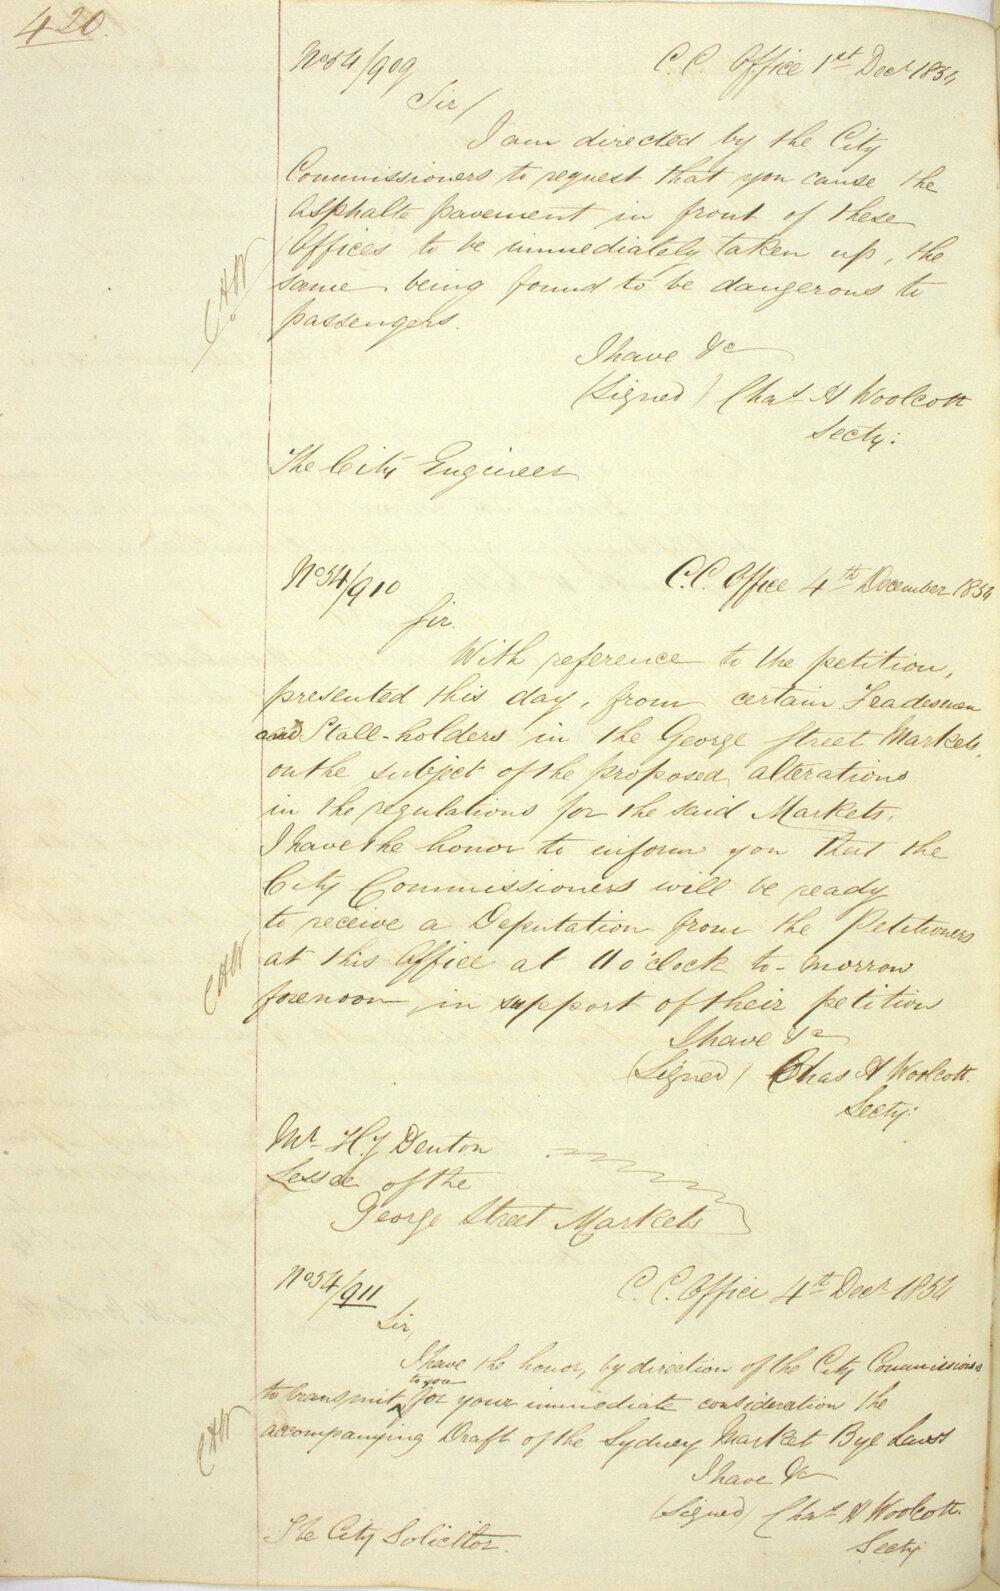 420.
No 54/909 C.C. Office 1st Decr 1854
Sir/
I am directed by the City
Commissioners to request that you cause the
Asphalte pavement in front of these
Offices to be immediately taken up, the
same being found to be dangerous to
passengers.
CHW
I have &c
(Signed) Chas H Woolcott
Secty:
The City Engineer
No 54/910 C.C. Office 4th December 1854
Sir.
With reference to the petition,
presented this day, from certain Tradesmen
and Stall-holders in the George Street Markets,
on the subject of the proposed alterations
in the regulations for the said Markets,
I have the honor to inform you that the
City Commissioners will be ready
to receive a Deputation from the Petitioners
at this Office at 11 o'clock to-morrow
forenoon, in support of their petition
CHW
I have &c
(Signed) Chas H Woolcott.
Secty:
Mr. H. J Denton
Lessee of the
George Street Markets
No 54/911 C.C. Office 4th Decr 1854
Sir,
I have the honor, by direction of the City Commissioners
to transmit to you for your immediate consideration the
accompanying Draft of the Sydney Market Bye Laws
CHW
I have &c
(Signed) Chas H Woolcott.
Secty
The City Solicitor.